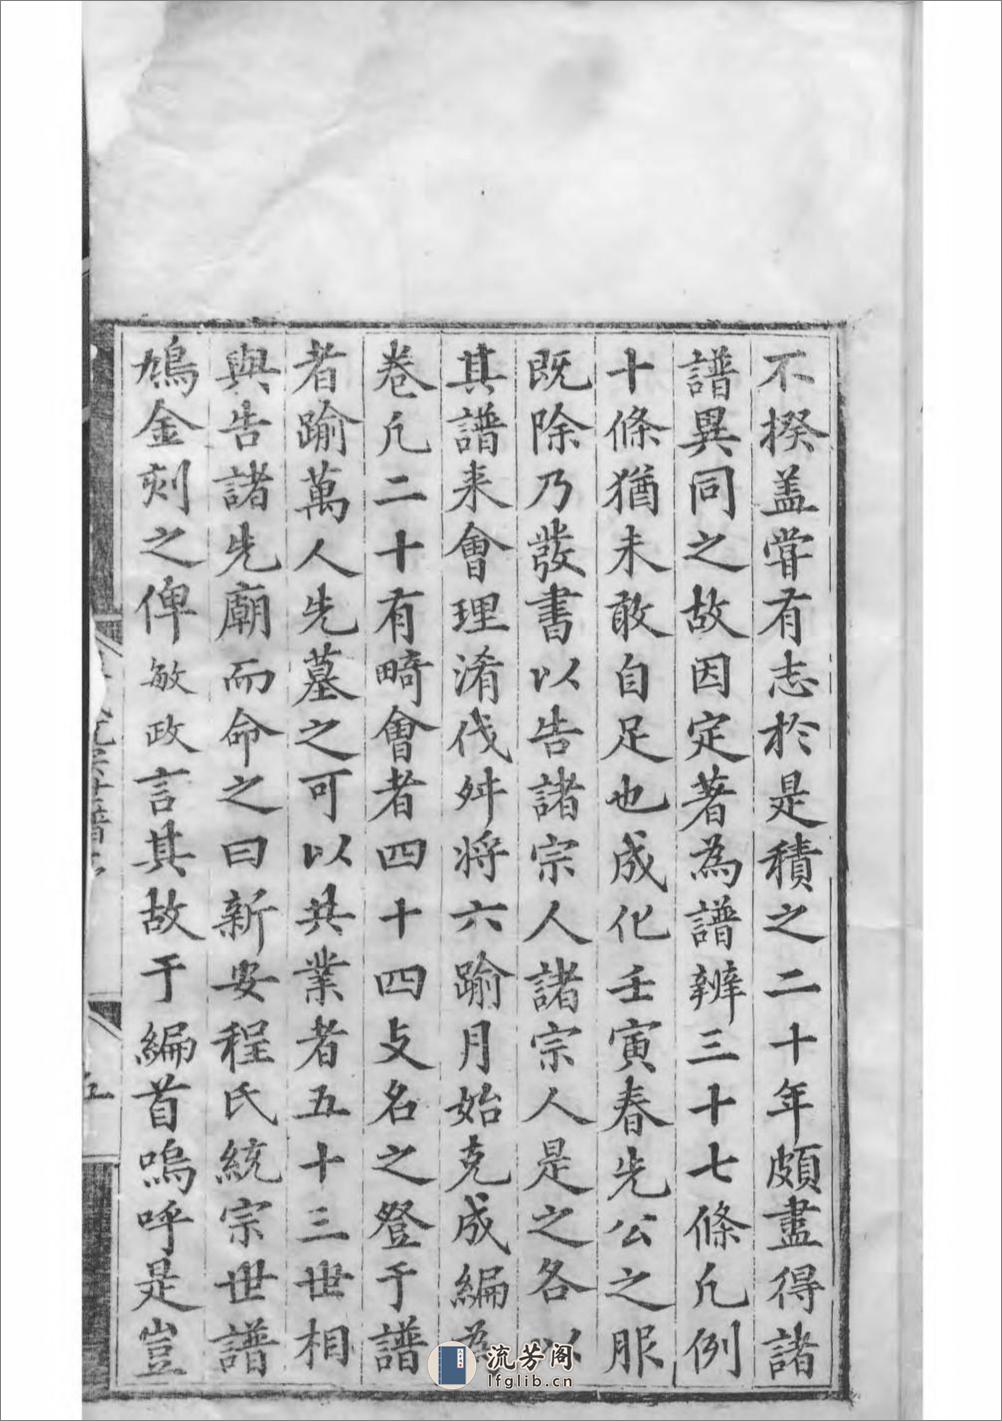 不揆盖甞有志於是積之二十年頗盡得諸
譜異同之故因定著為譜辨三十七條凡例
十條猶未敢自足也成化壬寅春先公之服
既除乃發書以告諸宗人諸宗人是之各以
其譜来會理淆伐舛将六踰月始克成編為
卷凡二十有畸會者四十四支名之登于譜
者踰萬人先墓之可以共業者五十三世相
與告諸先廟而命之曰新安程氏統宗世譜
鳩金刻之俾敏政言其故于編首嗚呼是豈
五
流芳阁
lfglib.cn